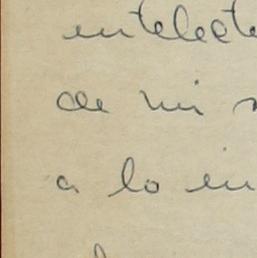 intelect
de mi
a lo in